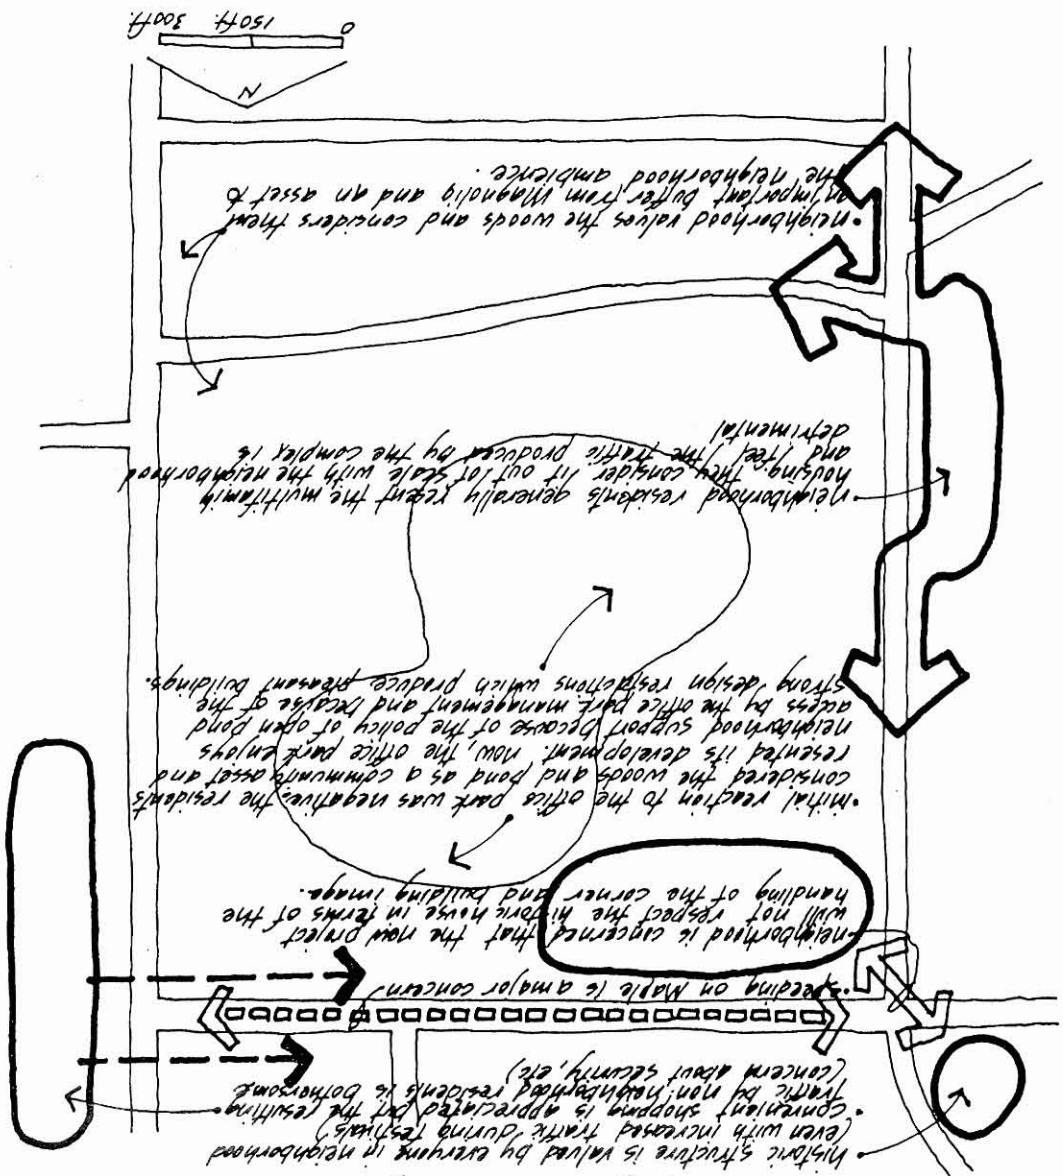 • historic structure is valued by everyone in neighborhood
(even with increased traffic during festivals)
• convenient shopping is appreciated but the resulting
traffic by non-neighborhood residents is bothersome
(concern about security, etc)
• speeding on Maple is a major concern
• neighborhood is concerned that the new project
will not respect the historic house in terms of the
handling of the corner and building image.
• initial reaction to the office park was negative. the residents
considered the woods and pond as a community asset and
resented its development. now, the office park enjoys
neighborhood support because of the policy of open pond
access by the office park management and because of the
strong design restrictions which produce pleasant buildings.
• neighborhood residents generally resent the multifamily
housing. they consider it out of scale with the neighborhood
and feel the traffic produced by the complex is
detrimental
• neighborhood values the woods and considers them
an important buffer from Magnolia and an asset to
the neighborhood ambience.
N
0 150ft. 300ft.